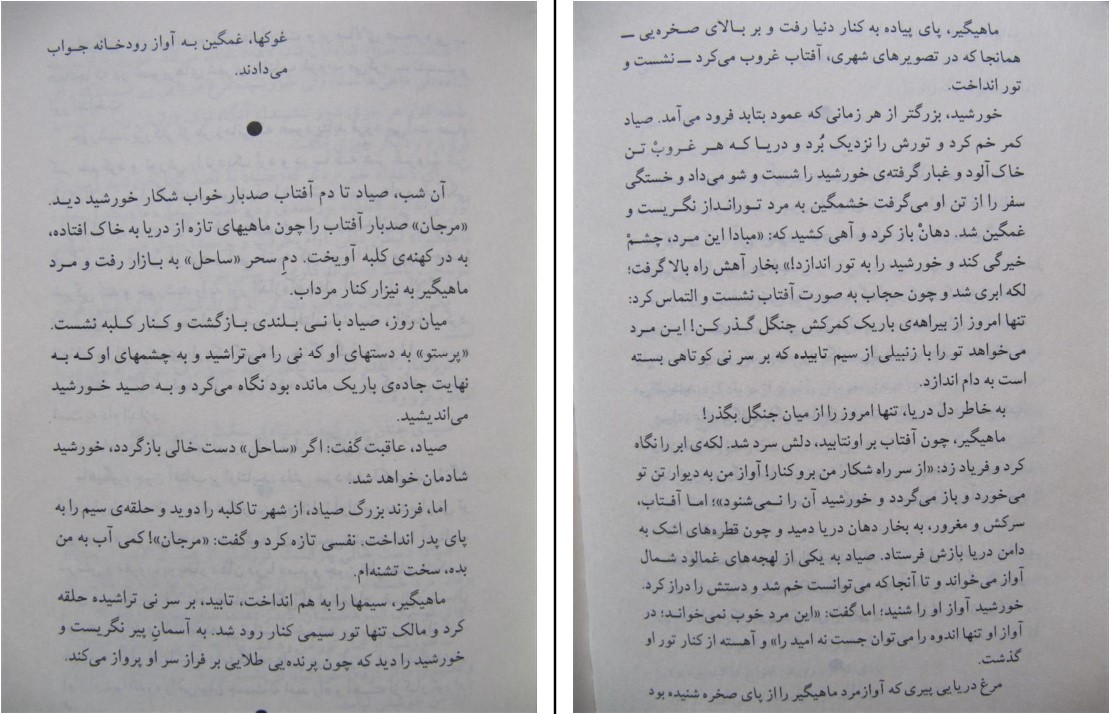 غوکها، غمگین به آواز رودخانه جواب
می‌دادند.
آن شب، صیاد تا دم آفتاب صدبار خواب شکار خورشید دید.
«مرجان» صدبار آفتاب را چون ماهیهای تازه از دریا به خاک افتاده،
به در کهنه‌ی کلبه آویخت. دمِ سحر «ساحل» به بازار رفت و مرد
ماهیگیر به نیزار کنار مرداب.
میان روز، صیاد با نی بلندی بازگشت و کنار کلبه نشست.
«پرستو» به دستهای او که نی را می‌تراشید و به چشمهای او که به
نهایت جاده‌ی باریک مانده بود نگاه می‌کرد و به صید خورشید
می‌اندیشید.
صیاد، عاقبت گفت: اگر «ساحل» دست خالی بازگردد، خورشید
شادمان خواهد شد.
اما، فرزند بزرگ صیاد، از شهر تا کلبه را دوید و حلقه‌ی سیم را به
پای پدر انداخت. نفسی تازه کرد و گفت: «مرجان»! کمی آب به من
بده، سخت تشنه‌ام.
ماهیگیر، سیمها را به هم انداخت، تابید، بر سر نی تراشیده حلقه
کرد و مالک تنها تور سیمی کنار رود شد. به آسمانِ پیر نگریست و
خورشید را دید که چون پرنده‌یی طلایی بر فراز سر او پرواز می‌کند.
ماهیگیر، پای پیاده به کنار دنیا رفت و بر بالای صخره‌یی ــ
همانجا که در تصویرهای شهری، آفتاب غروب می‌کرد ــ نشست و
تور انداخت.
خورشید، بزرگتر از هر زمانی که عمود بتابد فرود می‌آمد. صیاد
کمر خم کرد و تورش را نزدیک بُرد و دریا که هر غروبْ تن
خاک‌آلود و غبار گرفته‌ی خورشید را شست و شو می‌داد و خستگی
سفر را از تن او می‌گرفت خشمگین به مرد تورانداز نگریست و
غمگین شد. دهانْ باز کرد و آهی کشید که: «مبادا این مرد، چشمْ
خیرگی کند و خورشید را به تور اندازد!» بخار آهش راه بالا گرفت؛
لکه ابری شد و چون حجاب به صورت آفتاب نشست و التماس کرد:
تنها امروز از بیراهه‌ی باریک کمرکش جنگل گذر کن! این مرد
می‌خواهد تو را با زنبیلی از سیم تابیده که بر سر نی کوتاهی بسته
است به دام اندازد.
به خاطر دل دریا، تنها امروز را از میان جنگل بگذر!
ماهیگیر، چون آفتاب بر او نتابید، دلش سرد شد. لکه‌ی ابر را نگاه
کرد و فریاد زد: «از سر راه شکار من برو کنار! آواز من به دیوار تن تو
می‌خورد و باز می‌گردد و خورشید آن را نمی‌شنود»؛ اما آفتاب،
سرکش و مغرور، به بخار دهان دریا دمید و چون قطره‌های اشک به
دامن دریا بازش فرستاد. صیاد به یکی از لهجه‌های غمالود شمال
آواز می‌خواند و تا آنجا که می‌توانست خم شد و دستش را دراز کرد.
خورشید آواز او را شنید؛ اما گفت: «این مرد خوب نمی‌خواند؛ در
آواز او تنها اندوه را می‌توان جست نه امید را» و آهسته از کنار تور او
گذشت.
مرغ دریایی پیری که آواز مرد ماهیگیر را از پای صخره شنیده بود